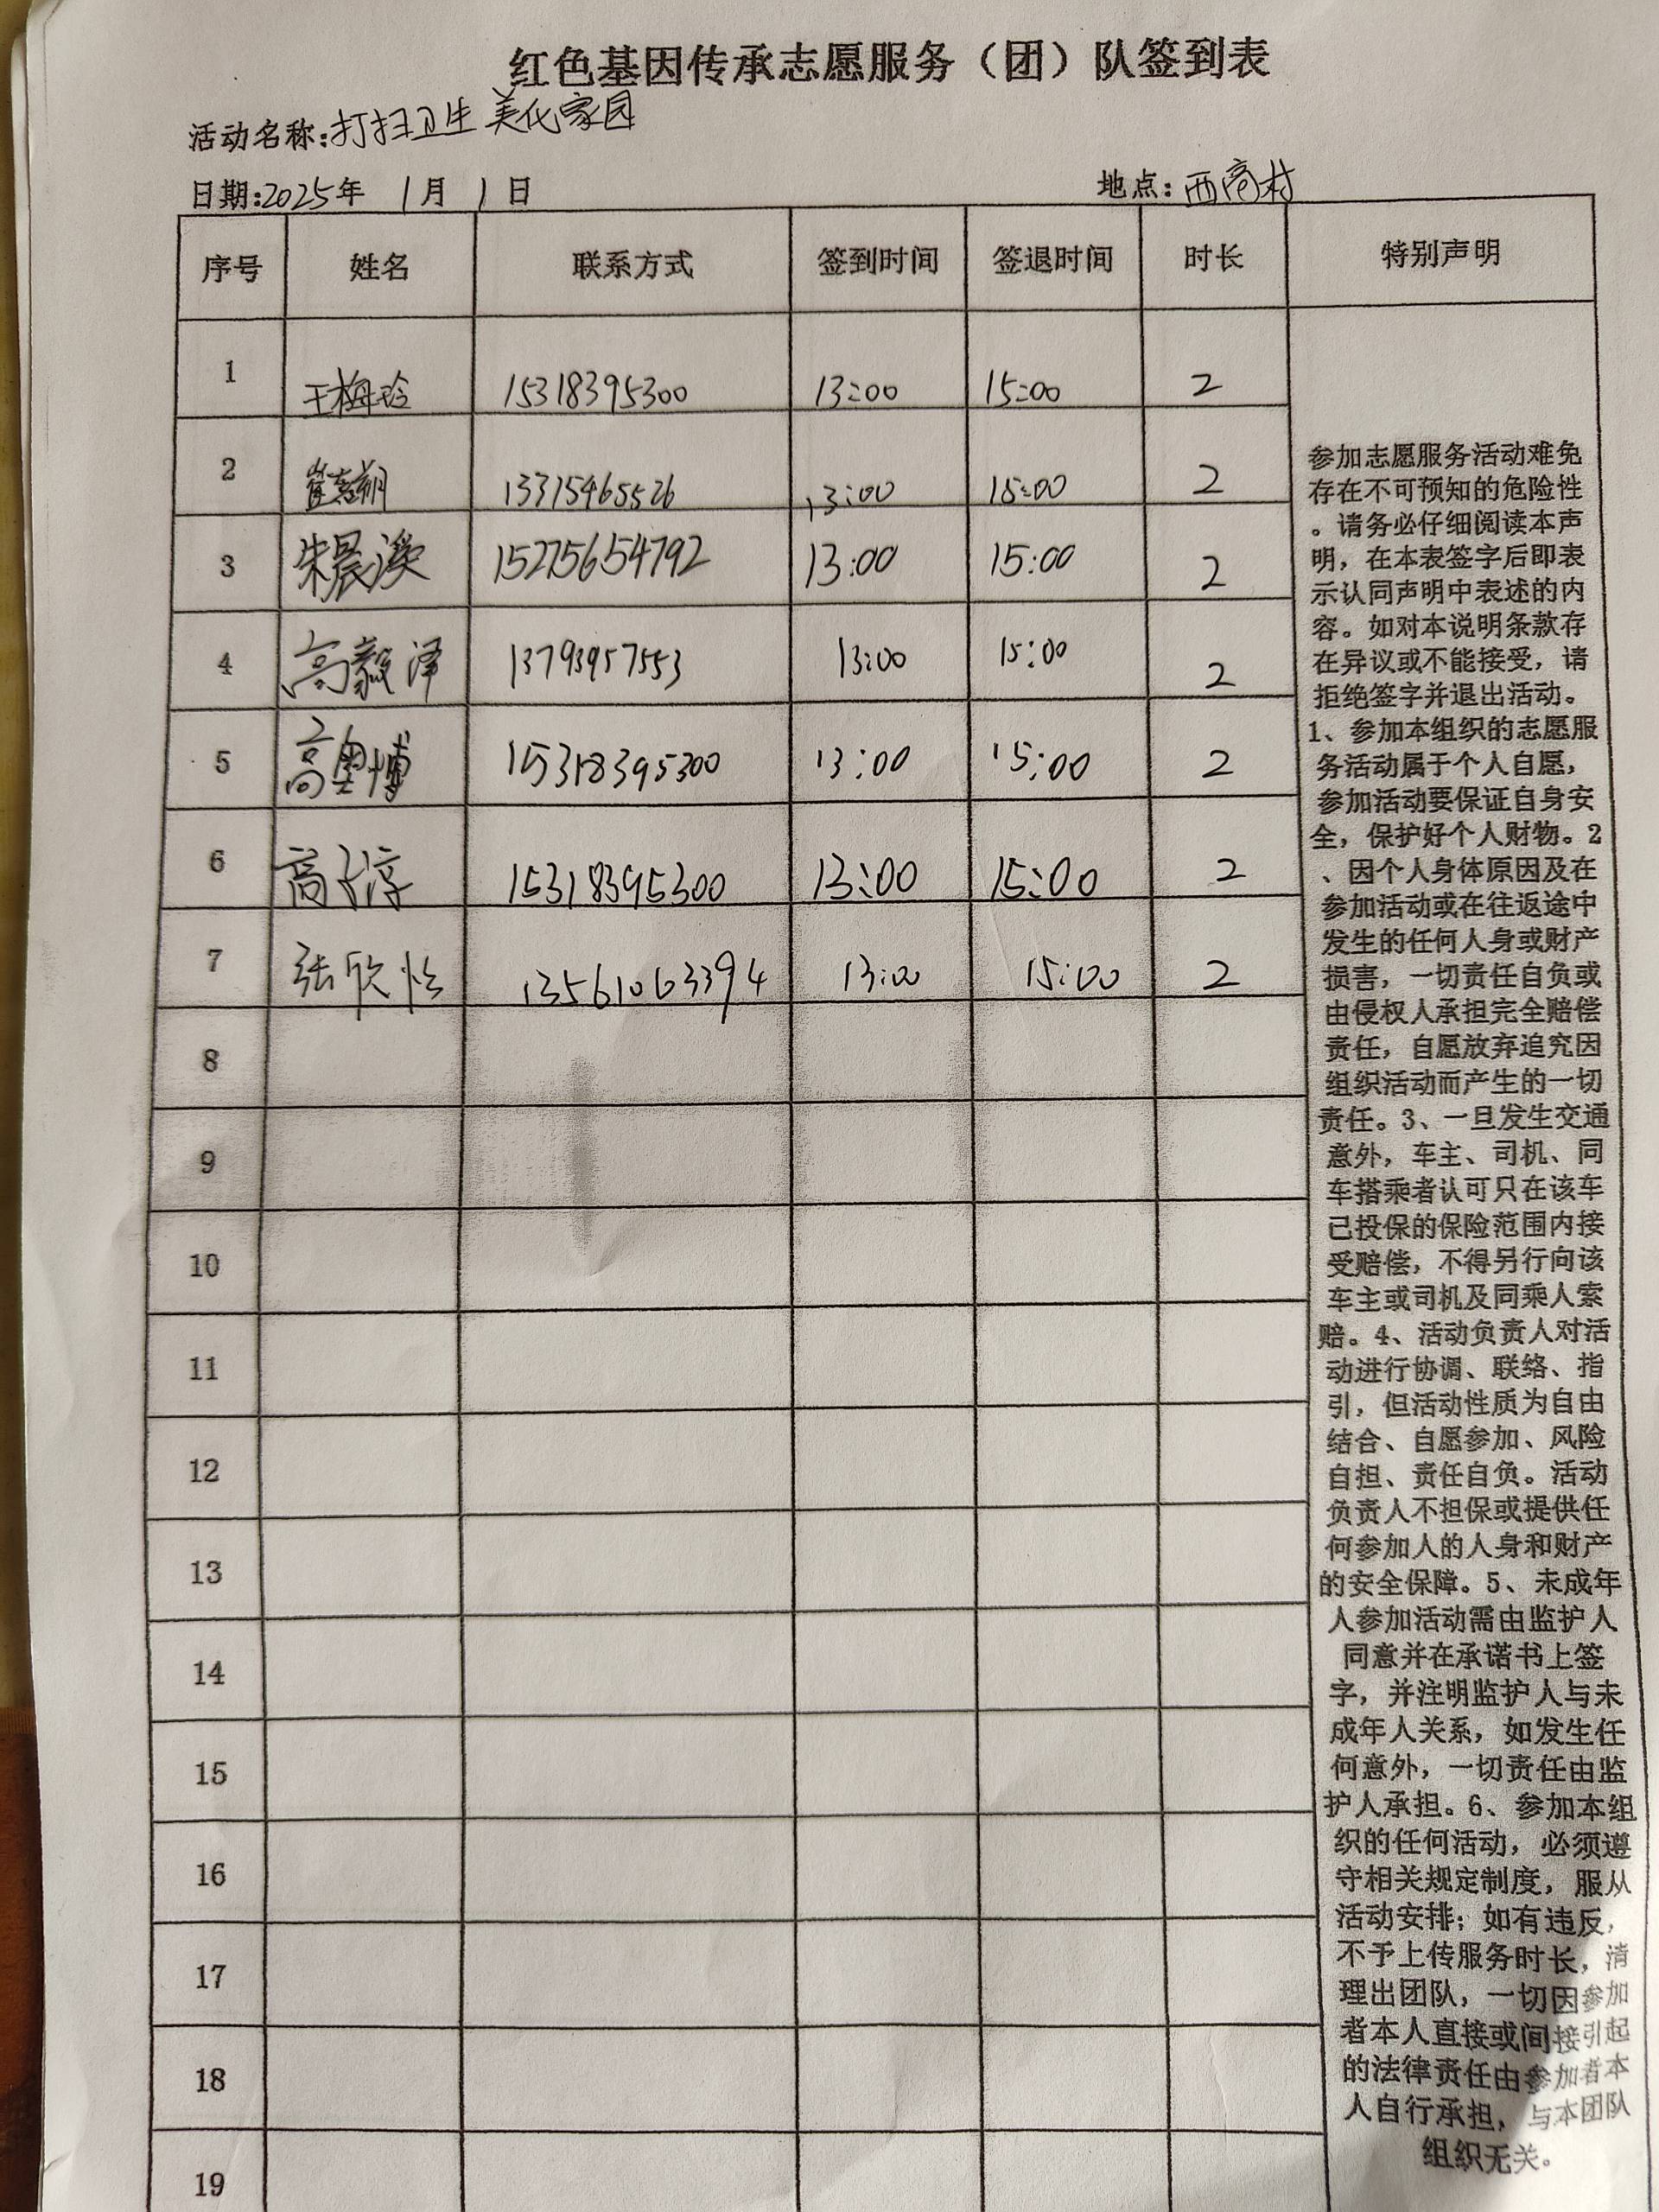 红色基因传承志愿服务（团）队签到表
活动名称:打扫卫生 美化家园
日期:2025年 1月 1日 地点:西高村
序号 姓名 联系方式 签到时间 签退时间 时长 特别声明
1 王梅玲 15318395300 13:00 15:00 2
2 13315465526 13:00 15:00 2
3 朱晨溪 15275654792 13:00 15:00 2
4 高毅泽 13793957553 13:00 15:00 2
5 高奥博 15318395300 13:00 15:00 2
6 高子淳 15318395300 13:00 15:00 2
7 张欣怡 13561063394 13:00 15:00 2
8
9
10
11
12
13
14
15
16
17
18
19
参加志愿服务活动难免
存在不可预知的危险性
。请务必仔细阅读本声
明，在本表签字后即表
示认同声明中表述的内
容。如对本说明条款存
在异议或不能接受，请
拒绝签字并退出活动。
1、参加本组织的志愿服
务活动属于个人自愿，
参加活动要保证自身安
全，保护好个人财物。2
、因个人身体原因及在
参加活动或在往返途中
发生的任何人身或财产
损害，一切责任自负或
由侵权人承担完全赔偿
责任，自愿放弃追究因
组织活动而产生的一切
责任。3、一旦发生交通
意外，车主、司机、同
车搭乘者认可只在该车
已投保的保险范围内接
受赔偿，不得另行向该
车主或司机及同乘人索
赔。4、活动负责人对活
动进行协调、联络、指
引，但活动性质为自由
结合、自愿参加、风险
自担、责任自负。活动
负责人不担保或提供任
何参加人的人身和财产
的安全保障。5、未成年
人参加活动需由监护人
同意并在承诺书上签
字，并注明监护人与未
成年人关系，如发生任
何意外，一切责任由监
护人承担。6、参加本组
织的任何活动，必须遵
守相关规定制度，服从
活动安排；如有违反，
不予上传服务时长，清
理出团队，一切因参加
者本人直接或间接引起
的法律责任由参加者本
人自行承担，与本团队
组织无关。